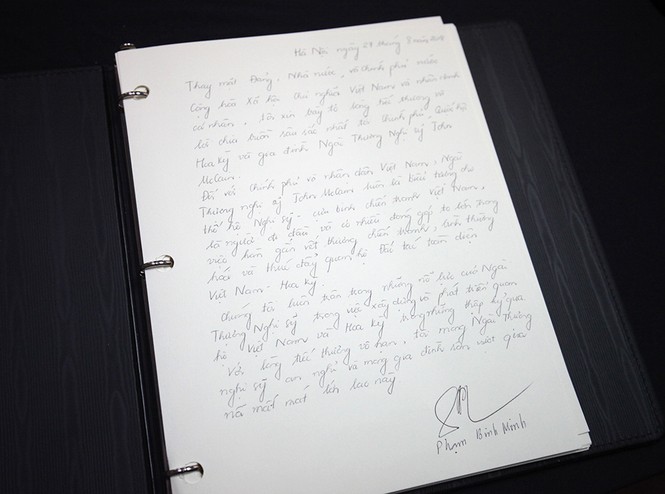 Hà Nội ngày 27 tháng 8 năm 2018
Thay mặt Đảng, Nhà nước, và Chính phủ nước
Cộng hòa Xã hội Chủ nghĩa Việt Nam và nhân danh
cá nhân, tôi xin bày tỏ lòng tiếc thương và
lời chia buồn sâu sắc nhất tới Chính phủ, Quốc hội
Hoa Kỳ và gia đình Ngài Thượng Nghị sỹ John
McCain.
Đối với Chính phủ và nhân dân Việt Nam, Ngài
Thượng nghị sỹ John McCain luôn là biểu tượng cho
thế hệ Nghị sỹ - cựu binh chiến tranh Việt Nam,
là người đi đầu và có nhiều đóng góp to lớn trong
việc hàn gắn vết thương chiến tranh, bình thường
hoá và thúc đẩy quan hệ Đối tác toàn diện
Việt Nam - Hoa Kỳ.
Chúng tôi luôn trân trọng những nỗ lực của Ngài
Thượng Nghị sỹ trong việc xây dựng và phát triển quan
hệ Việt Nam và Hoa Kỳ trong những thập kỷ qua.
Với lòng tiếc thương vô hạn, tôi mong Ngài Thượng
nghị sỹ an nghỉ và mong gia đình sớm vượt qua
nỗi mất mát lớn lao này
Phạm Bình Minh